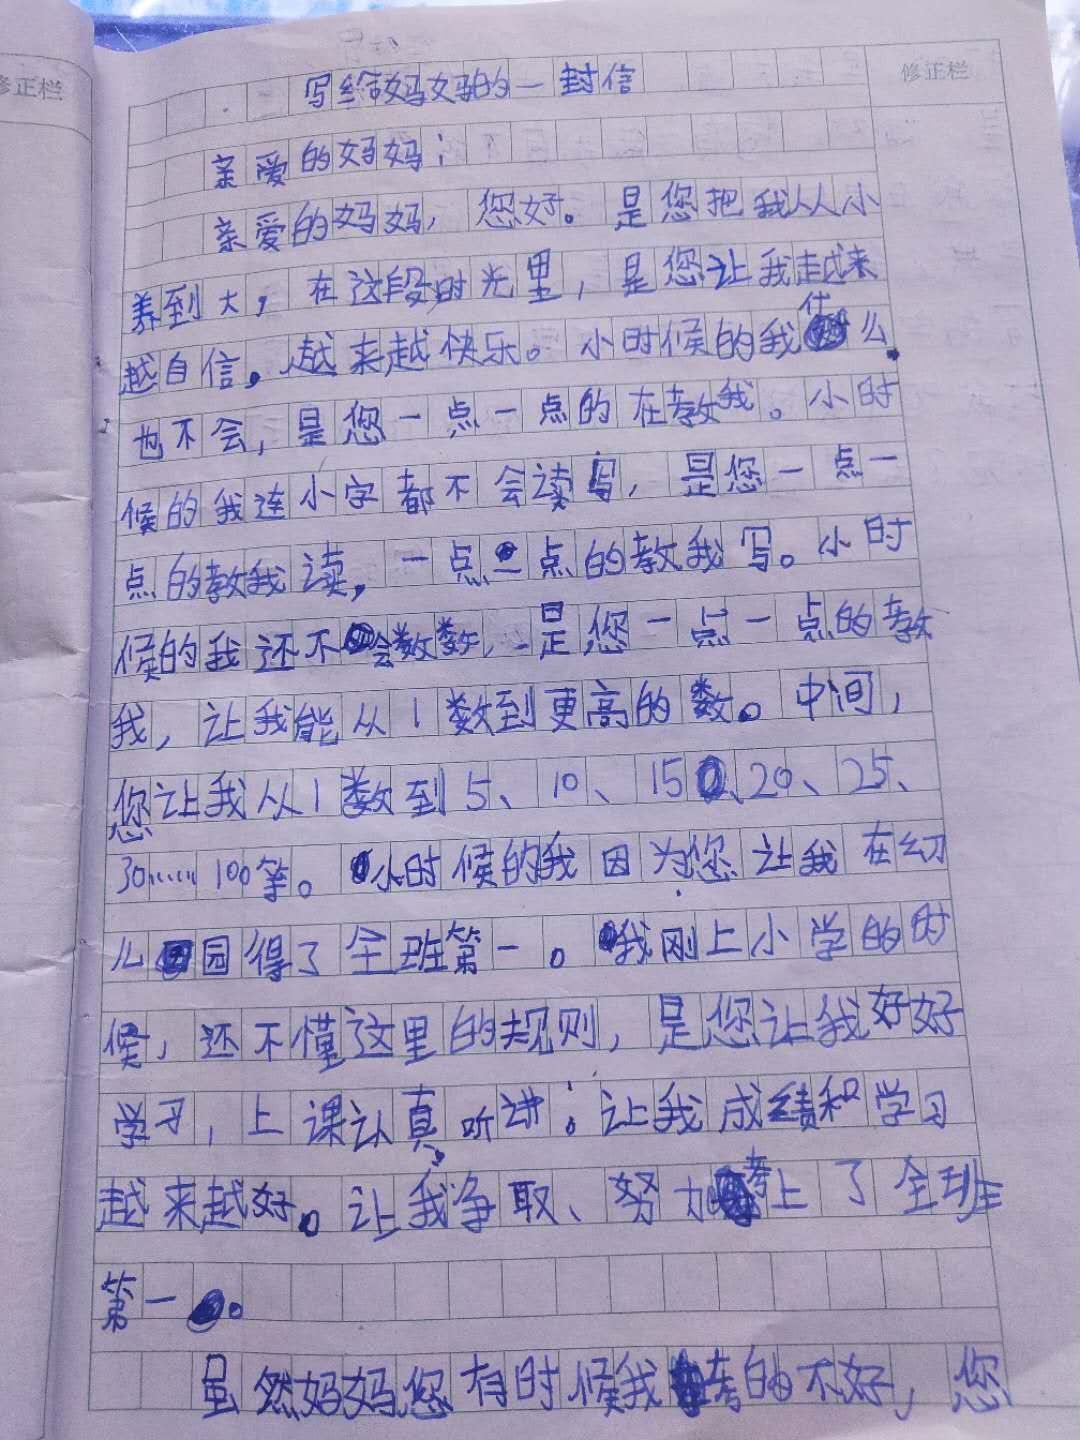 修正栏
修正栏
写给妈妈的一封信
亲爱的妈妈：
亲爱的妈妈，您好。是您把我从小
养到大，在这段时光里，是您让我越来
越自信，越来越快乐。小时候的我什么
也不会，是您一点一点的在教我。小时
候的我连小字都不会读写，是您一点一
点的教我读，一点一点的教我写。小时
候的我还不会数数，是您一点一点的教
我，让我能从1数到更高的数。中间，
您让我从1数到5、10、15、20、25、
30……100等。小时候的我因为您让我在幼
儿园得了全班第一。我刚上小学的时
候，还不懂这里的规则，是您让我好好
学习，上课认真听讲；让我成绩和学习
越来越好。让我争取、努力考上了全班
第一。
虽然妈妈您有时候我考的不好，您